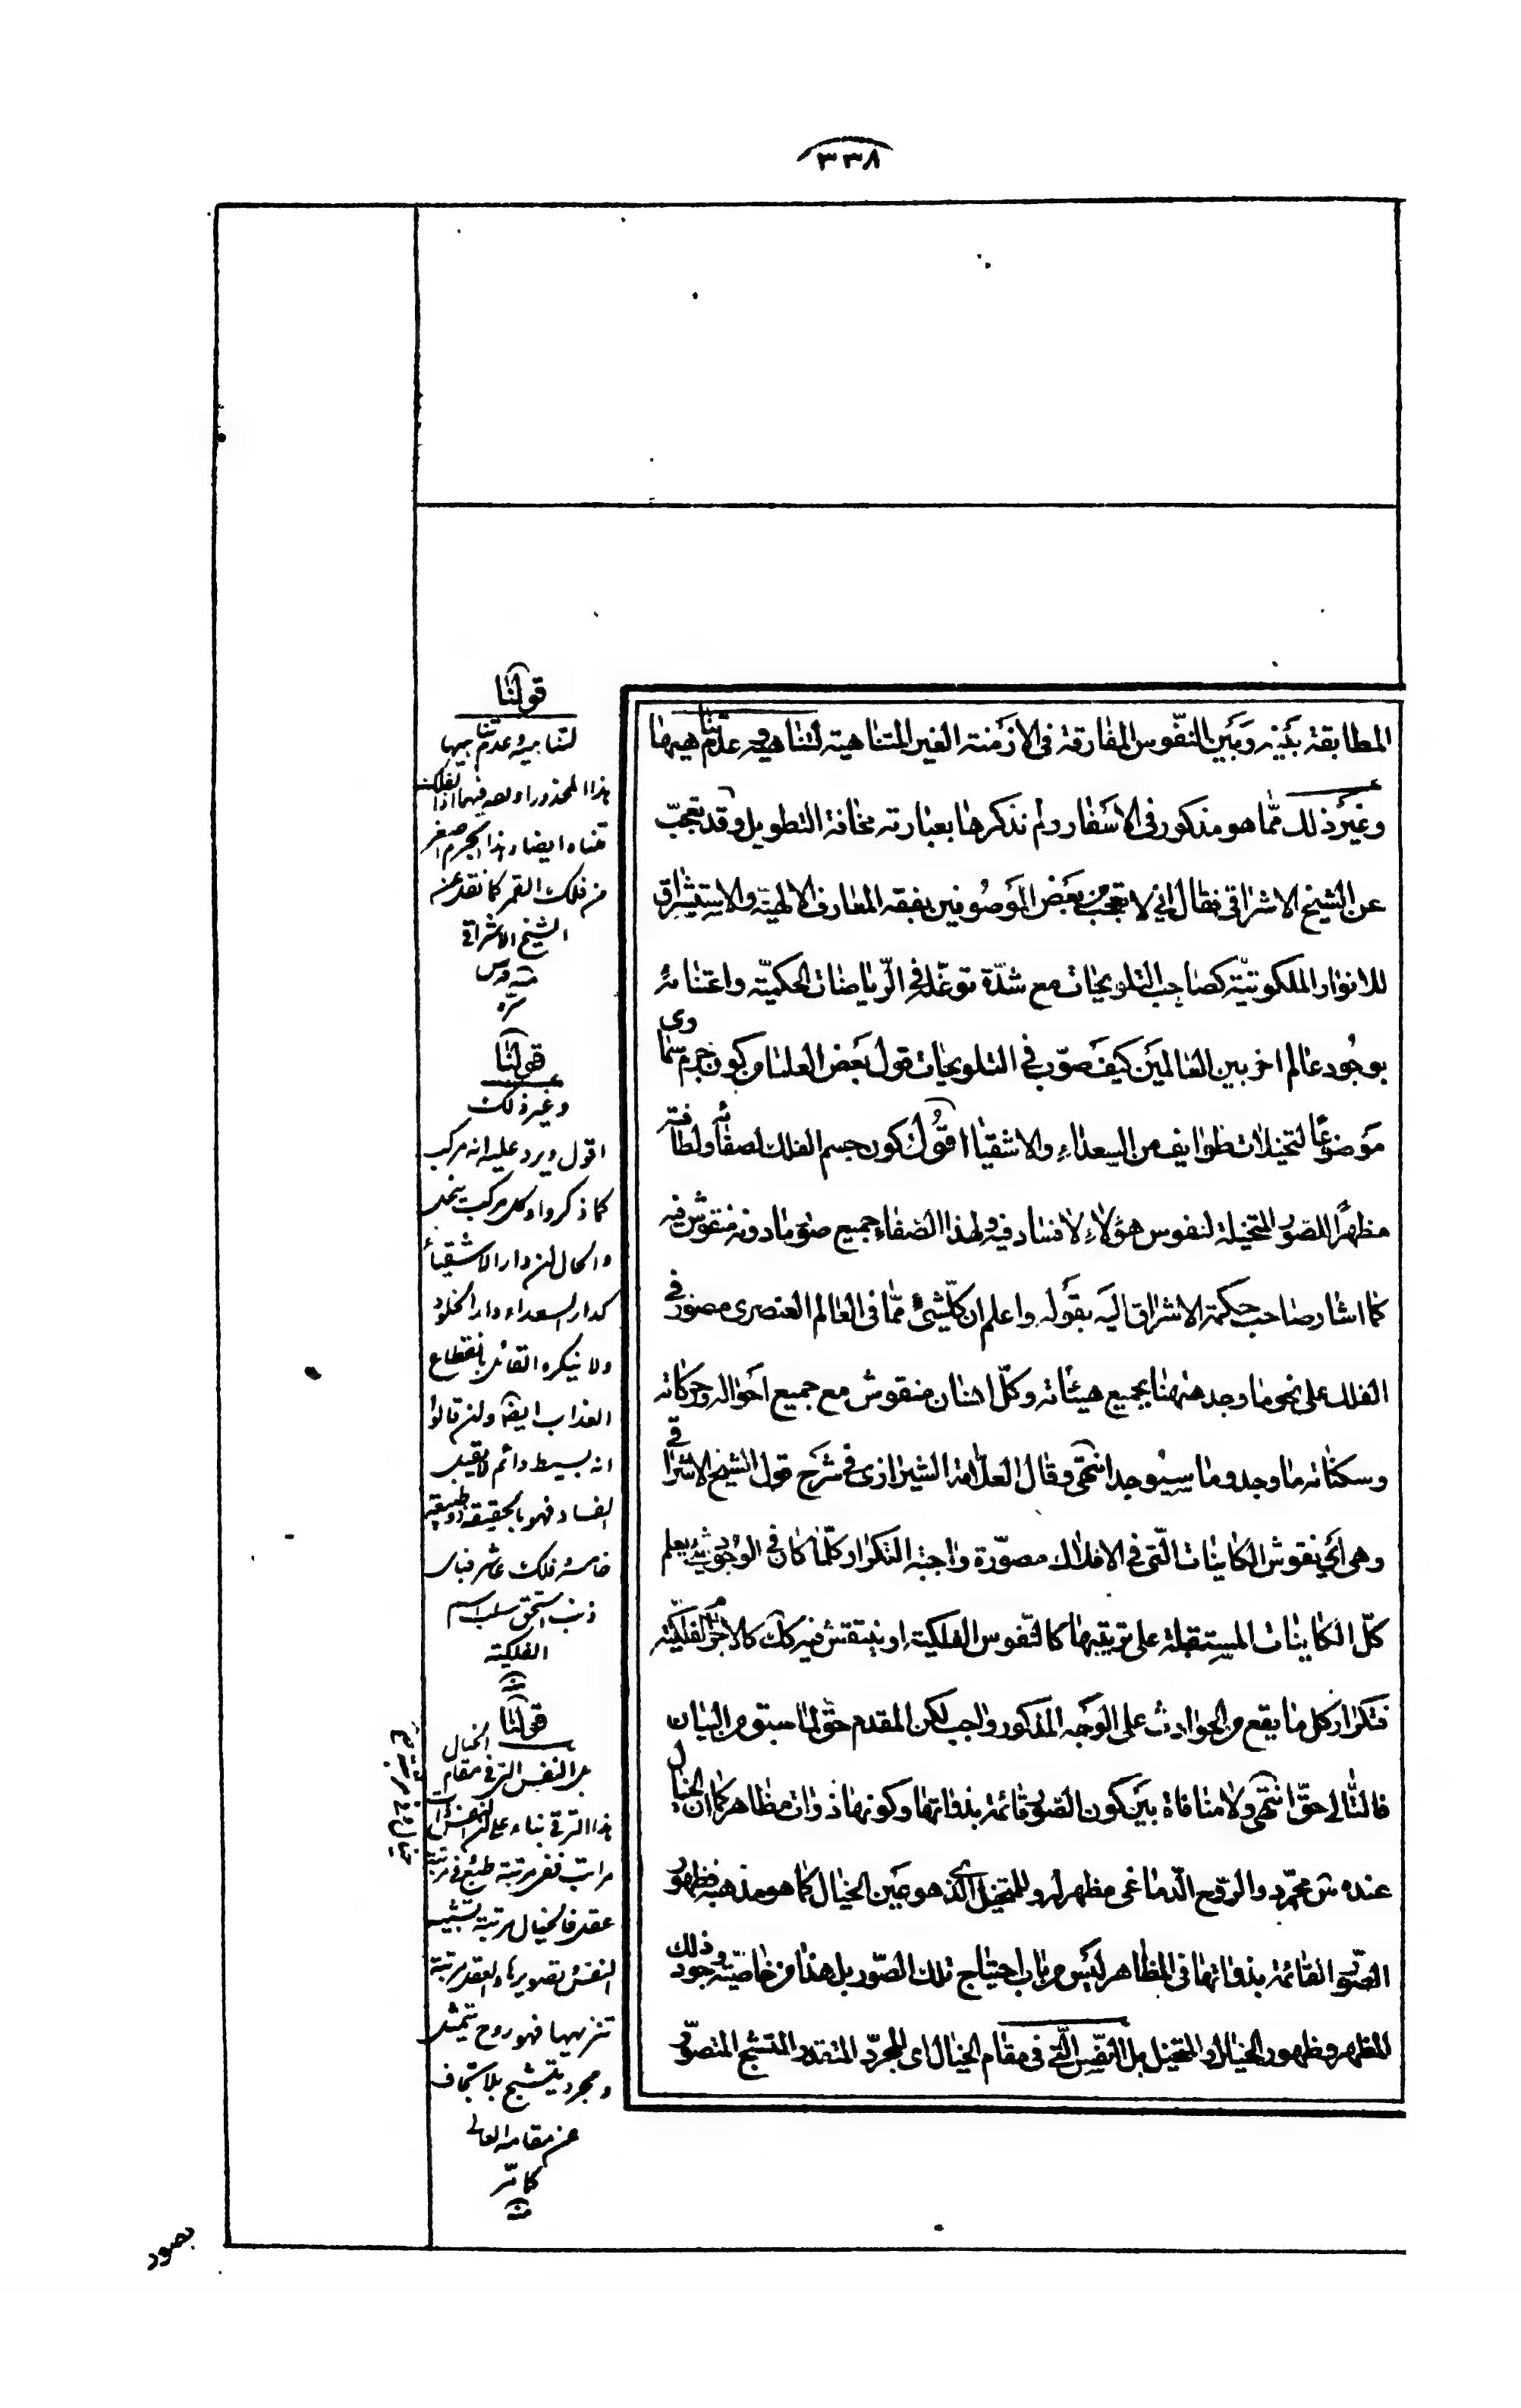 ٣٣٨
المطابقة بينه وبين النّفوس المفارقة فى الازمنة الغير المتناهية لتناهيه وعدم تناهيها
وغير ذلك ممّا هو مذكور فى الاسفار ولم نذكرها بعبارته مخافة التطويل وقد تعجّب
عن الشيخ الاشراقى فقال انى لاتعجّب من بعض الموصوفين بفقه المعارف الالهيّة والاستيشراق
للانوار الملكوتيّة كصاحب التلويحات مع شدّة توغّله فى الرّياضات الحكميّة واعتنائه
بوجود عالم اخر بين العالمين كيف صوّب فى التلويحات قول بعض العلماء من كون جرم سماوى
موضوعًا لتخيلات طوايف من السعداء والاشقياء اقول كون جسم الفلك لصفائه ولطافته
مظهرًا للصور المتخيلة لنفوس هؤلاء لا فساد فيه ولهذا الصفاء جميع صور مادونه منقوش فيه
كما اشار صاحب حكمة الاشراق اليه بقوله واعلم ان كلّ شئ ممّا فى العالم العنصرى مصوّر فى
الفلك على نحو ما وجد ههنا بجميع هيئاته وكلّ انسان منقوش مع جميع احواله وحركاته
وسكناته ما وجد وما سيوجد انتهى وقال العلّامة الشيرازى فى شرح قول الشيخ الاشراقى
وهى اى نقوش الكاينات الّتى فى الافلاك مصوّرة واجبة التكرار كلّما كان فى الوجود شئ يعلم
كلّ الكاينات المستقبلة على ترتيبها كالنّفوس الفلكية او ينتقش فيه كك كالاجرام الفلكيّة
فتكرار كل ما يقع من الحوادث على الوجه المذكور واجب لكن المقدم حقّ لما سبق من البيان
فالتّالى حقّ انتهى ولا منافاة بين كون الصور قائمة بذواتها وكونها ذوات مظاهر كما ان الخيال
عنده س مجرّد والروح الدّماغى مظهر له وللمتخيل الّذى هو عين الخيال كما هو مذهبه فظهور
الصور القائمة بذواتها فى المظاهر ليس من باب احتياج تلك الصّور بل هذا من خاصّيّة وجود ذلك
المظهر وظهور الخيال او المتخيل بل النّفس الّتى فى مقام الخيال اى المجرّد المتقدر المتشبح المتصوّر
قولنا
لتناهيه وعدم تناهيها
هذا المحذور اولصه فيهما اذا الفلك
متناه ايضا وهذا الجرم اصغر
من فلك القمر كما نقل عن
الشيخ الاشراقى
منه قدس
سرّه
قولنا
وغير ذلك
اقول ويرد عليه انه مركب
كما ذكروا وكل مركب ينحل
والحال ان دار الاشقياء
كدار السعداء دار الخلود
ولا ينكره القائل بانقطاع
العذاب ايضا وان قالوا
انه بسيط دائم لا يقبل
الفساد فهو بالحقيقة ذو طبيعة
خامسة فلك عاشر فباى
ذنب استحق سلب اسم
الفلكية
منه
قولنا
بل النفس التى فى مقام الخيال
هذا الترقى بناء على ان للنفس
مراتب ففى مرتبة طبع وفى مرتبة
عقل فالخيال مرتبة تشبيه
النفس بتصويرها والعقل مرتبة
تنزيهها فهو روح يتمثل
ومجرد يتشبح بلا تجاف
عن مقامه العالى
كما مرّ
منه
بصور